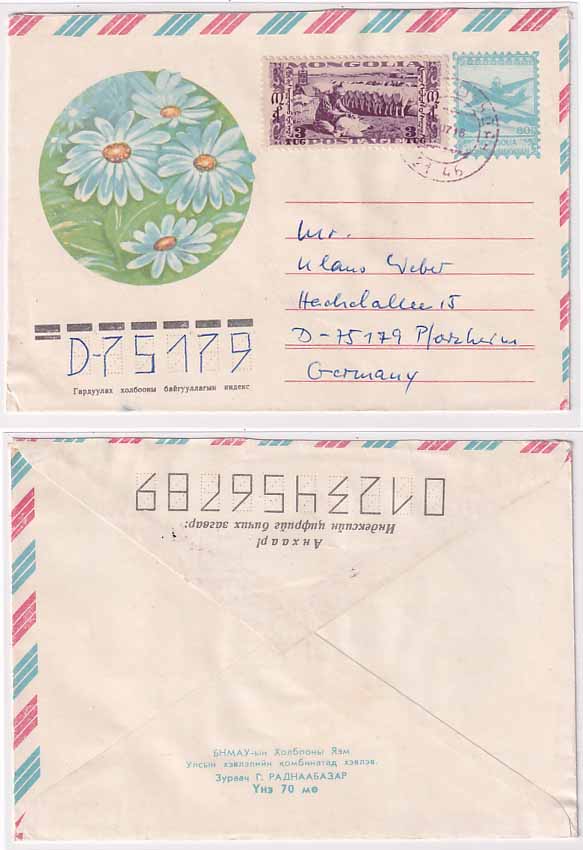 MONGOLIA
3 3
TUG POSTAGE TUG
80
21 46
Mr.
Klaus Weber
Hachelallee 15
D-75179 Pforzheim
Germany
D-75179
Гардуулах холбооны байгууллагын индекс
0123456789
Индексийн цифрийг бичих загвар:
Анхаар!
БНМАУ-ын Холбооны Яам
Улсын хэвлэлийн комбинатад хэвлэв.
Зураач Г. РАДНААБАЗАР
Үнэ 70 мө